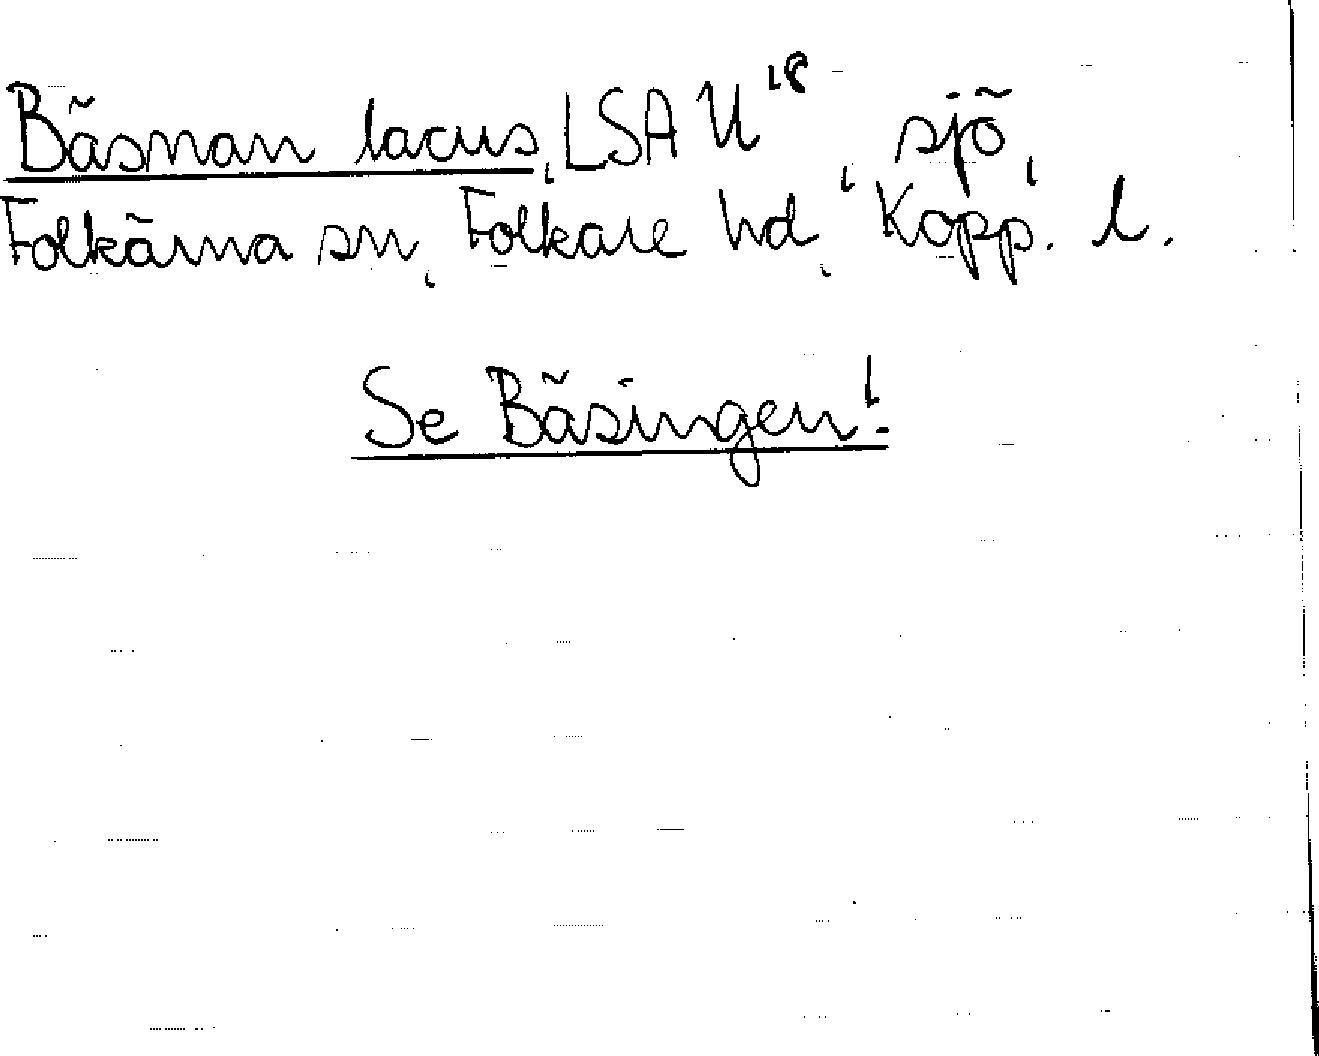 Bäsman lacus, LSA U¹⁸, sjö,
Folkärna sn, Folkare hd, Kopp. l.
Se Bäsingen!